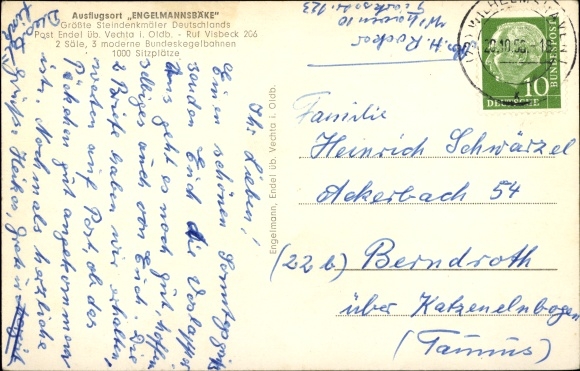 Ausflugsort „ENGELMANNSBÄKE"
Größte Steindenkmäler Deutschlands
Post Endel üb. Vechta i. Oldb. - Ruf Visbeck 206
2 Säle, 3 moderne Bundeskegelbahnen
1000 Sitzplätze
Ihr Lieben!
Einen schönen Sonntagsgruß
senden Euch die
Uns geht es noch gut, hoffen
selbiges auch von Euch. Die
2 Briefe haben wir erhalten,
warten auf Post, ob das
Päckchen gut angekommen
ist. Nochmals herzliche
Grüße Heiko,
Engelmann, Endel üb. Vechta i. Oldb.
Abs. H.
W'haven 10
123
DEUTSCHE
BUNDESPOST
10
Familie
Heinrich Schwärzel
Ackerbach 54
(22 b) Berndroth
über Katzenelnbogen
(Taunus)